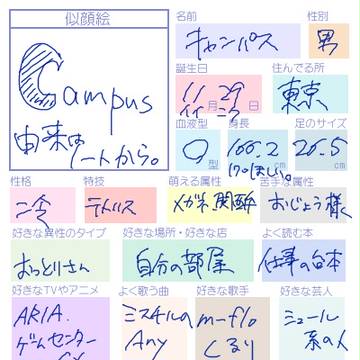 似顔絵
Campus
由来は
ノートから。
名前
キャンパス
性別
男
誕生日
11月29日
住んでる所
東京
血液型
O型
身長
166.2cm
170ほしい。
足のサイズ
26.5cm
性格
特技
テトリス
萌える属性
メガネ、関西弁
苦手な属性
おじょう様
好きな異性のタイプ
おっとりさん
好きな場所・好きな店
自分の部屋
よく読む本
仕事の台本
好きなTVやアニメ
ARIA.
ゲームセンター
CX
よく歌う曲
ミスチルの
Any
好きな歌手
m-flo
くるり
好きな芸人
シュール
系の人